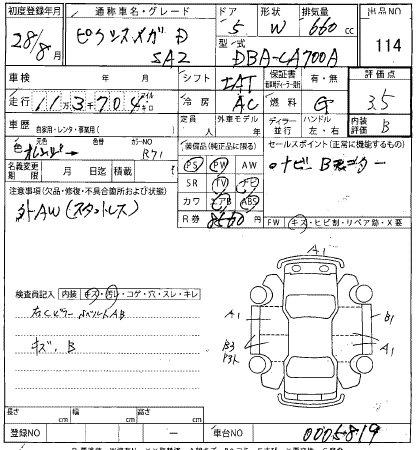 初度登録年月 通称車名・グレード ドア 形状 排気量 出品NO
28/8月 ピクシスメガ D 5 W 660 cc 114
SA2 型式 DBA-LA700A
車検 年 月 シフト IAT 保証書 有・無 評価点
走行 11万3千704 冷房 AC 燃料 G 3.5
車歴 自家用・レンタ・事業用( ) 定員 人 外車モデル 年 ディーラー 並行 ハンドル 左・右 内装評価 B
色 オレンジ 元色 カラーNO R71 装備品(純正品に限る) セールスポイント(正常に機能するもの)
名義変更期限 月 日迄 積載 PS PW AW ナビ Bモニター
注意事項(欠品・修復・不具合箇所および状態) SR TV ナビ
外AW(スタットレス) カワ エアB ABS
R券 8560円 FW キズ・ヒビ割・リペア跡・X要
A1
検査員記入 内装 キズ・汚レ・コゲ・穴・スレ・キレ
右Cピラー シートベルトAB
A1 B1
キズ、B B3 A1
A1
長さ cm 幅 cm 高さ cm
登録NO ー 車台NO 0005819